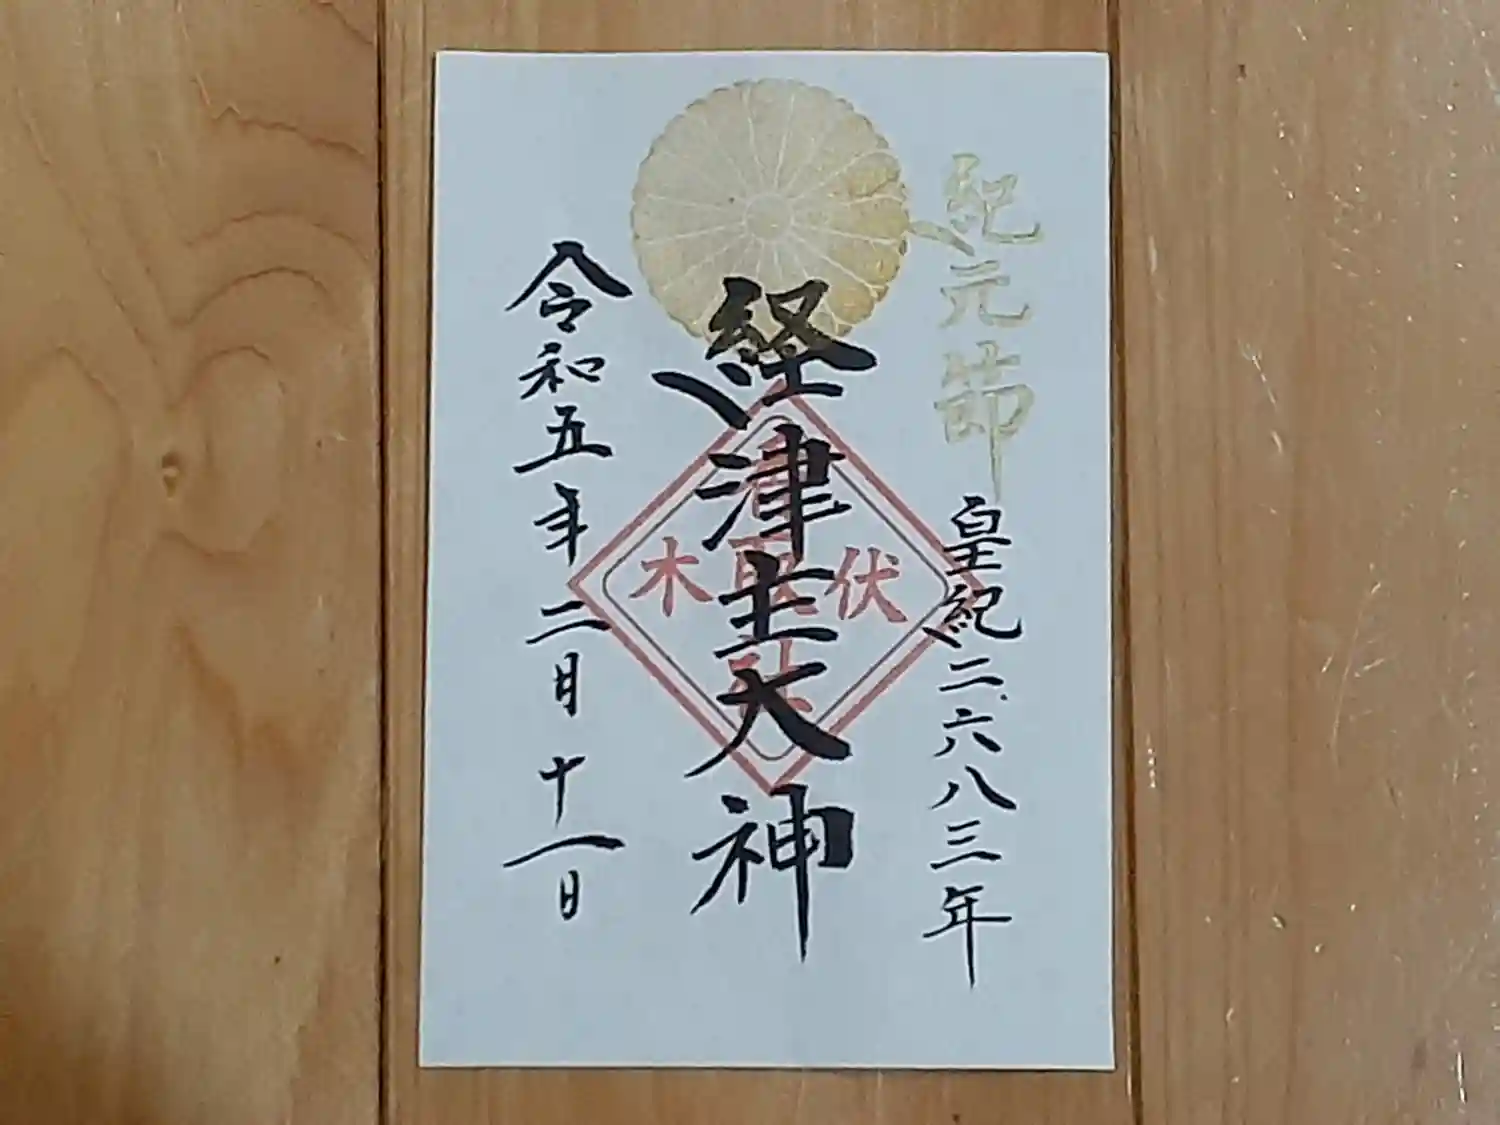 紀元節
皇紀二、六八三年
経津主大神
伏木香取社
令和五年二月十一日